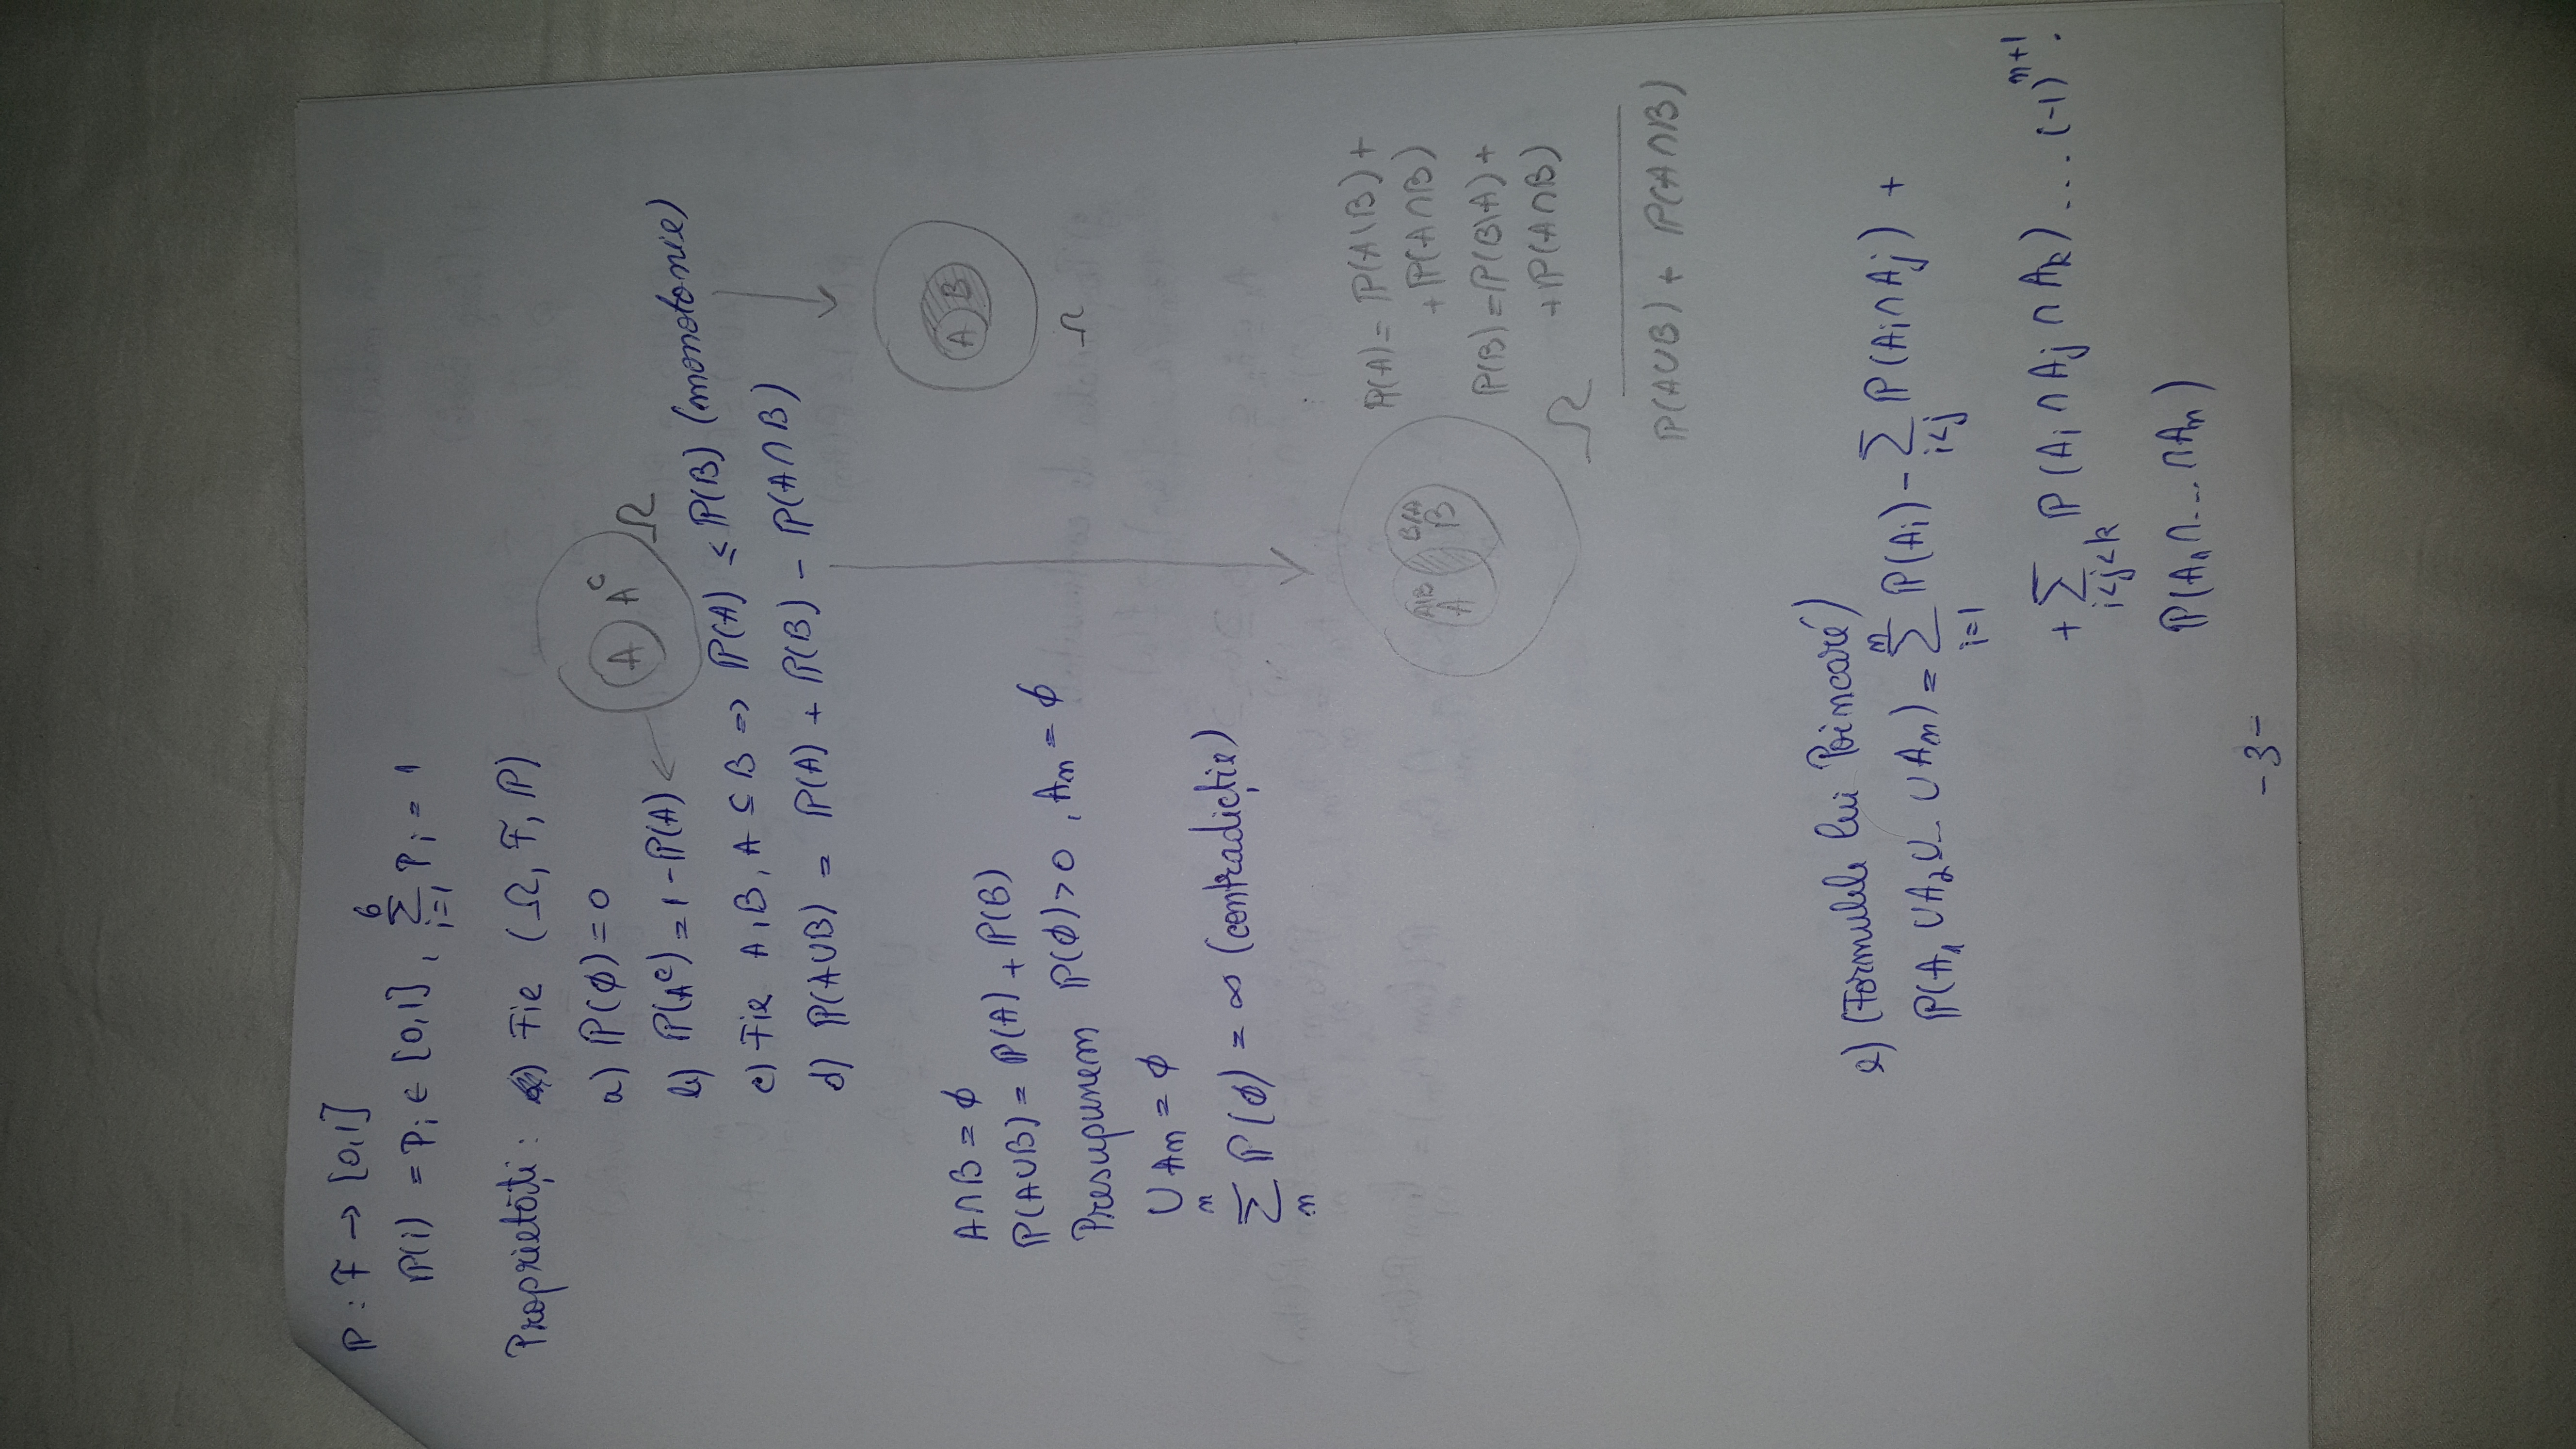 ℙ : F → [0,1]
ℙ(i) = Pᵢ ∈ [0,1] , ∑_{i=1}^{6} Pᵢ = 1
Proprietăți : Fie (Ω, F, ℙ)
a) ℙ(∅) = 0
A Aᶜ Ω
b) ℙ(Aᶜ) = 1 - ℙ(A)
c) Fie A, B, A ⊆ B ⇒ ℙ(A) ≤ ℙ(B) (monotonie)
d) ℙ(A∪B) = ℙ(A) + ℙ(B) - ℙ(A∩B)
A B
Ω
A∩B = ∅
ℙ(A∪B) = ℙ(A) + ℙ(B)
Presupunem ℙ(∅) > 0 , Aₙ = ∅
⋃_n Aₙ = ∅
∑_n ℙ(∅) = ∞ (contradicție)
A\B B\A
A B
Ω
ℙ(A) = ℙ(A\B) +
+ ℙ(A∩B)
ℙ(B) = ℙ(B\A) +
+ ℙ(A∩B)
ℙ(A∪B) + ℙ(A∩B)
e) (Formulele lui Poincaré)
ℙ(A₁ ∪ A₂ ∪ ... ∪ Aₙ) = ∑_{i=1}^{n} ℙ(Aᵢ) - ∑_{i<j} ℙ(Aᵢ ∩ Aⱼ) +
+ ∑_{i<j<k} ℙ(Aᵢ ∩ Aⱼ ∩ Aₖ) ... (-1)ⁿ⁺¹ ·
ℙ(A₁ ∩ ... ∩ Aₙ)
- 3 -